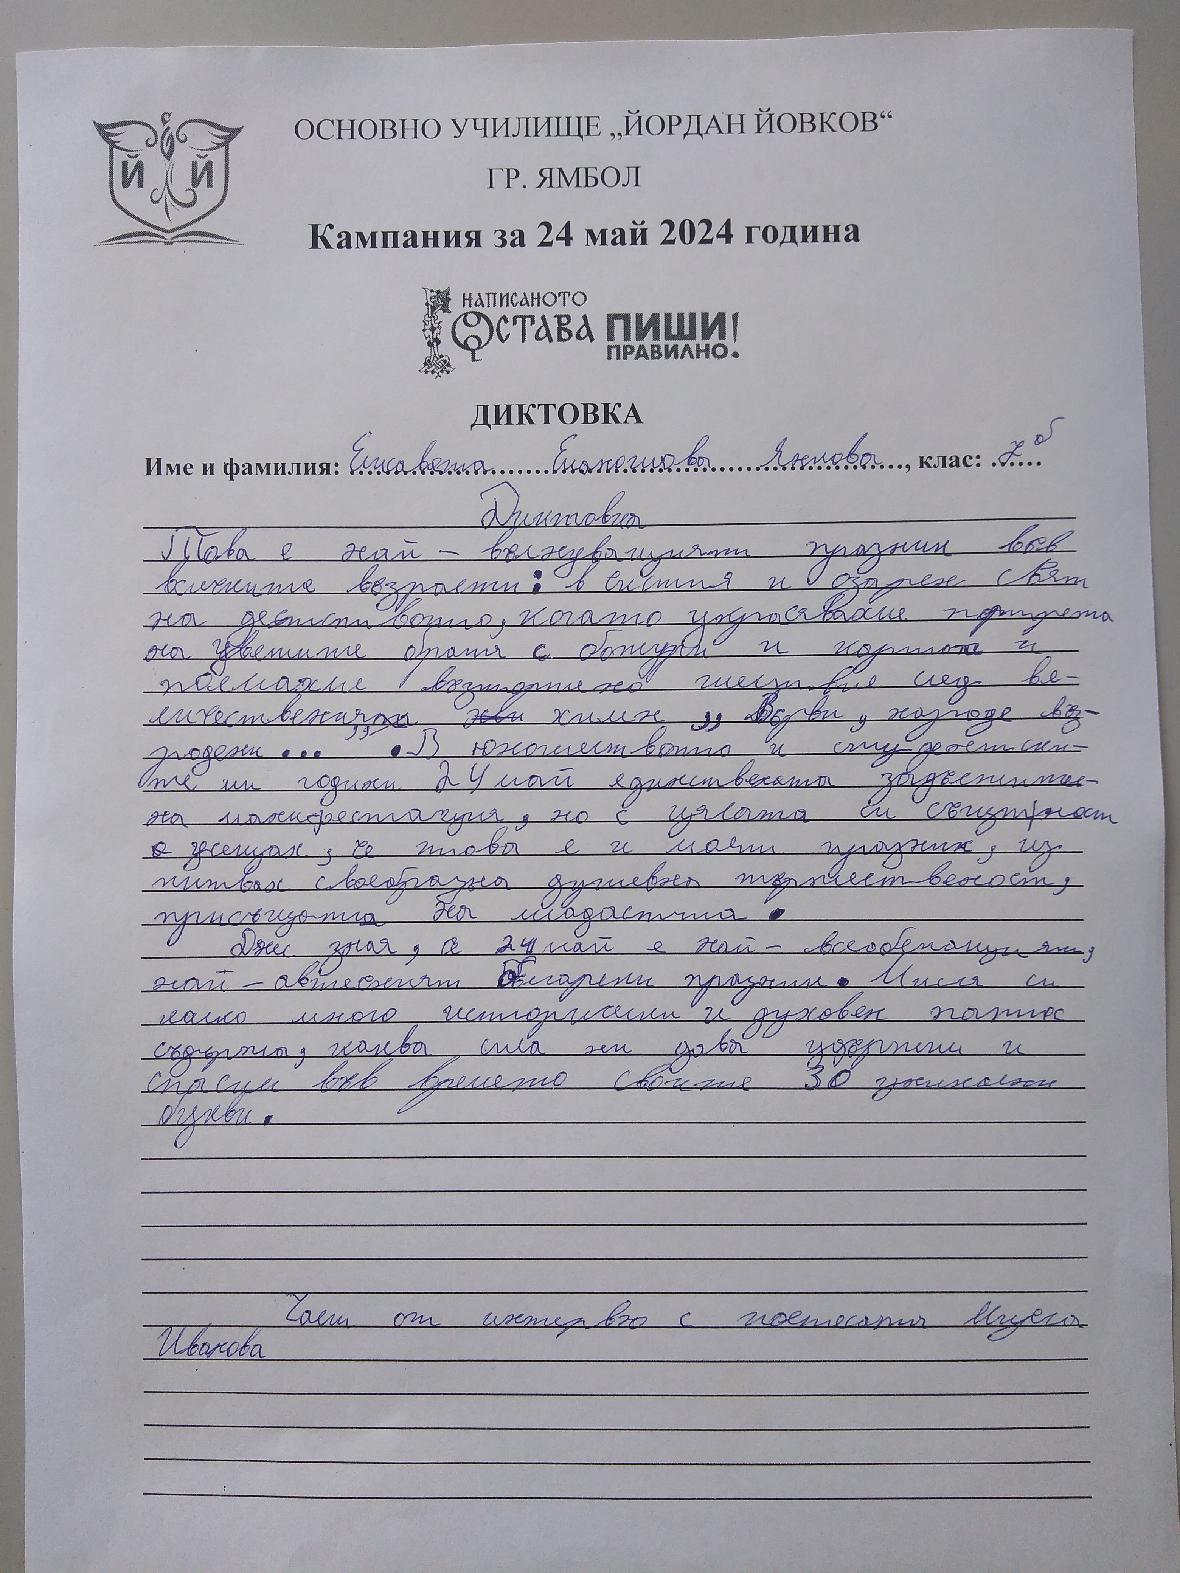 С
Й Й
ОСНОВНО УЧИЛИЩЕ „ЙОРДАН ЙОВКОВ“
ГР. ЯМБОЛ
Кампания за 24 май 2024 година
НАПИСАНОТО
ОСТАВА ПИШИ!
ПРАВИЛНО.
ДИКТОВКА
Име и фамилия: Елисавета Янкова, клас: б
Диктовка
Това е най – вълнуващият празник във
всичките възрасти: в чистия и озарен свят
на детството, когато украсявахме портрета
на Светите братя с божури и
поемахме възторжено шествие след ве-
личествения химн ,, Върви , народе въз-
родени... ". В юношеството и студентски-
те ми години 24 май единствената задължител-
на манифестация, но с цялата си същност
усещах, че това е и моят празник, из
питвах своеобразна душевна тържественост,
присъщата на младостта.
Днес зная, че 24 май е най – всеобемащият,
най – български празник. Мисля си
колко много исторически и духовен патос
съдържа, каква сила ни дава удържани и
спасени във времето своите 30 уникални
букви.
Част от интервю с поетесата Миряна
Иванова